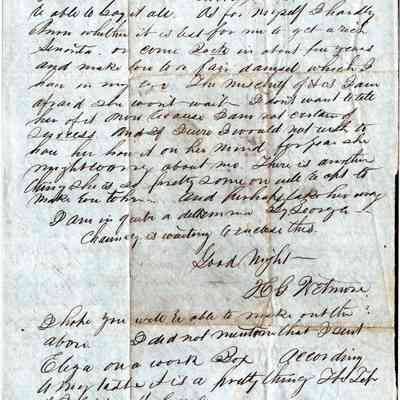 be able to buy it all. As for myself I hardly
know whether it is best for me to get a rich
Senorita. or come back in about two years
and make love to a fair damsel which I
have in my eye The mischief of it is I am
afraid she wont wait. I dont want to tell
her of it now because I am not certain of
success And if I were I would not wish to
have her have it on her mind for fear she
might worry about me. There is another
thing she is so pretty some one will be apt to
make love to her And perhaps take her away
I am in quite a dilemma By George
Chauncey is waiting to enclose this.
Good Night
H C Wetmore
I hope you will be able to make out the
above I did not mention that I sent
Eliza on a work Box According
to my taste it is a pretty thing